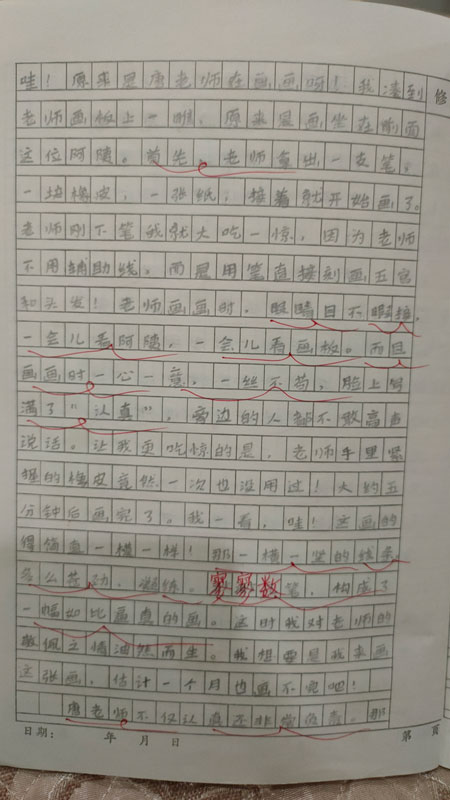 哇！原来是唐老师在画画呀！我凑到
老师画板上一瞧，原来是画坐在前面
这位阿陵。首先，老师拿出一支笔，
一块橡皮，一张纸，接着就开始画了。
老师刚下笔我就大吃一惊，因为老师
不用辅助线，而是用笔直接刻画五官
和头发！老师画画时，眼睛目不暇接，
一会儿看阿陵，一会儿看画板。而且
画画时一心一意，一丝不苟，脸上写
满了“认真”，旁边的人都不敢高声
说话。让我更吃惊的是，老师手里紧
握的橡皮竟然一次也没用过！大约五
分钟后画完了。我一看，哇！这画的
得简直一模一样！那一横一竖的线条，
多么苍劲，熟练。寥寥数笔，构成了
一幅如此逼真的画。这时我对老师的
敬佩之情油然而生。我想要是我来画
这张画，估计一个月也画不完吧！
唐老师不仅认真还非常负责。那
日期： 年 月 日 第 页
修